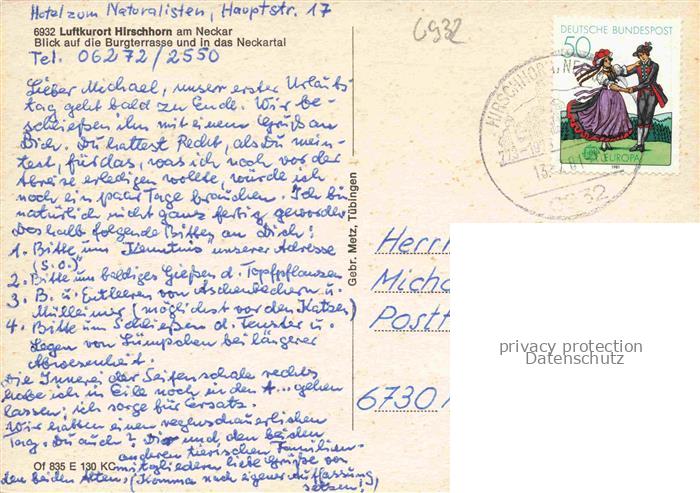 Hotel zum Naturalisten, Hauptstr. 17
6932 Luftkurort Hirschhorn am Neckar
Blick auf die Burgterrasse und in das Neckartal
Tel. 06272/2550
Lieber Michael, unser erster Urlaubs-
tag geht bald zu Ende. Wir be-
schließen ihn mit einem Gruß an
Dich. Du hattest Recht, als Du mein-
test, für das, was ich noch vor der
Abreise erledigen wollte, würde ich
noch ein paar Tage brauchen. Ich bin
natürlich nicht ganz fertig geworden.
Deshalb folgende Bitten an Dich:
1. Bitte um "Kenntnis" unserer Adresse
(s.o.)
2. Bitte um baldiges Gießen d. Topfpflanzen
3. B. u. Entleeren von Aschenbechern u.
Mülleimer (möglichst vor den Katzen)
4. Bitte um Schließen d. Fenster u.
Legen von Lümpchen bei längerer
Abwesenheit.
Die Innerei der Seifenschale rechts
habe ich in Eile noch in den A... gehen
lassen; ich sorge für Ersatz.
Wir hatten einen regenschauerlichen
Tag. Du auch? Dir und den beiden
anderen tierischen Familien-
mitgliedern liebe Grüße von
den beiden Alten, (Komma nach eigener Auffassung
setzen!)
Of 835 E 130 KC
Gebr. Metz, Tübingen
6932
DEUTSCHE BUNDESPOST
50
EUROPA
HIRSCHHORN
6932
Herrn
Micha
Postf
6730
privacy protection
Datenschutz